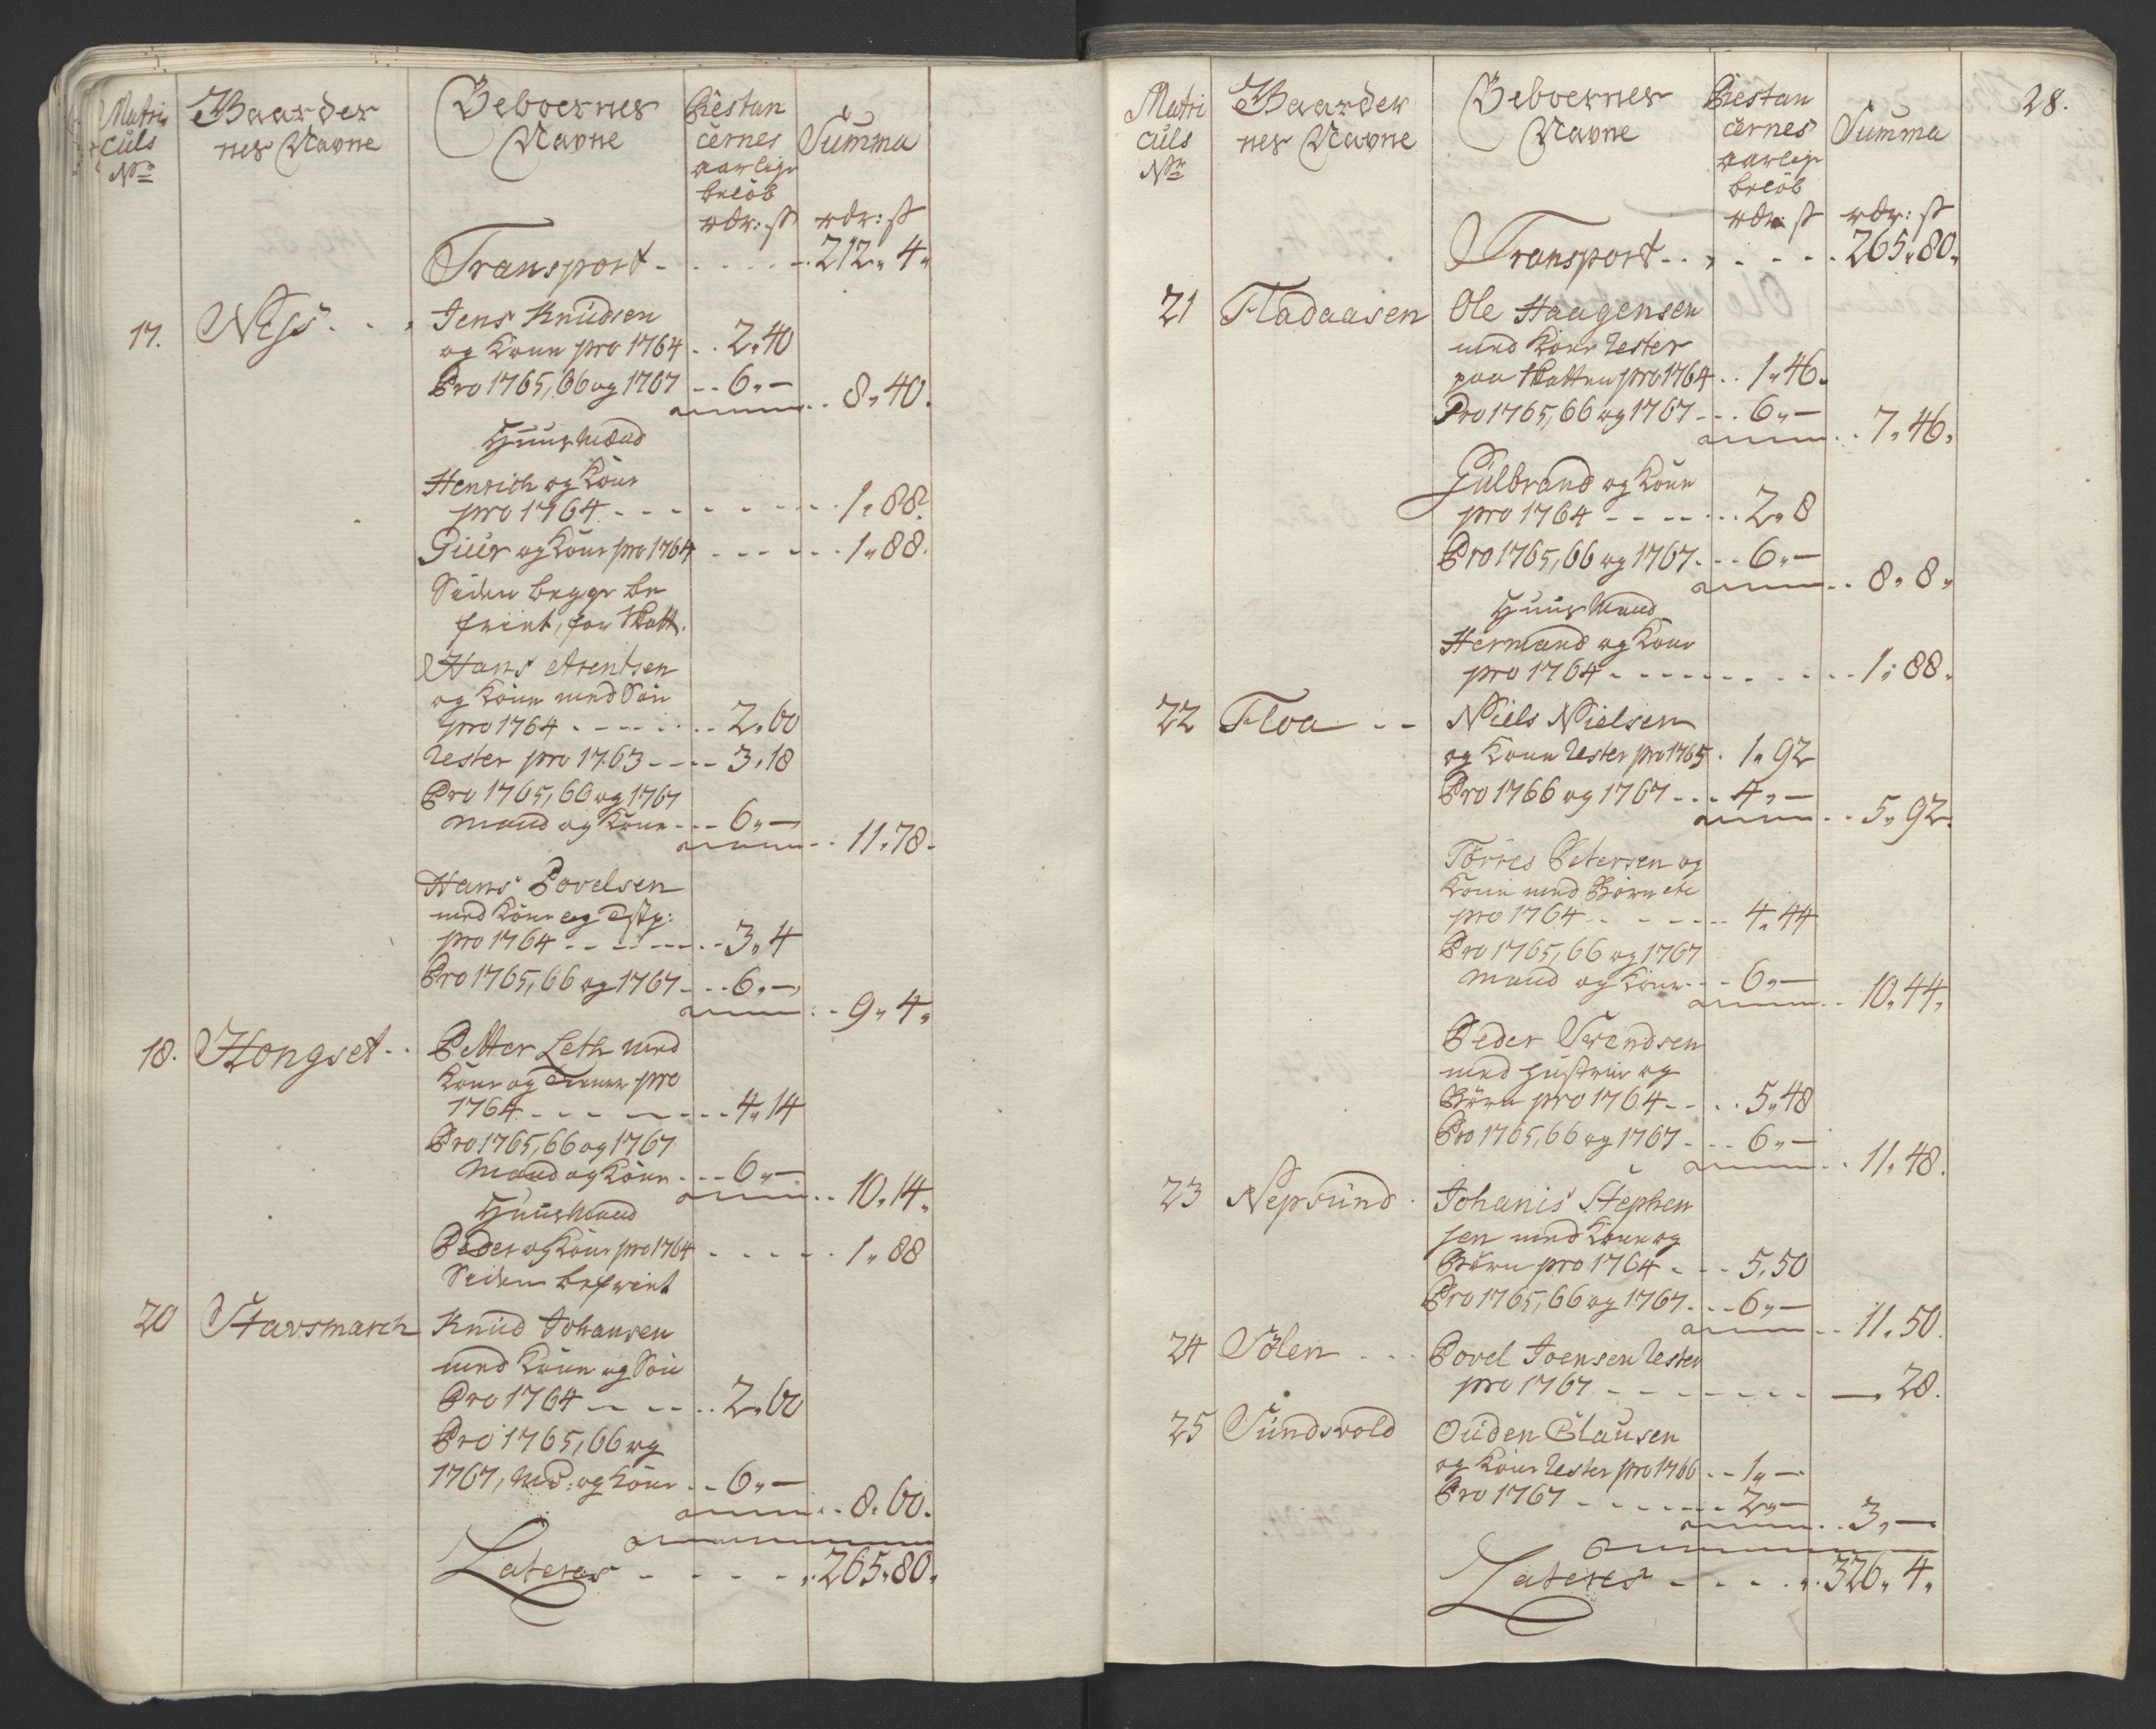 Matri
culs
No
Gaarder
nes Navne
Beboernes
Navne
Restan
cernes
aarlige
beløb
rdr: ß
Summa
rdr: ß
Transport - - - - - - 212„ 4„
17. Ness - - Jens Knudsen
og Kone pro 1764 - - 2„40
Pro 1765, 66 og 1767 - - 6„— - - 8„40.
Huusmænd
Henrich og Kone
pro 1764 - - - - - - 1„88
Giær og Kone pro 1764 - - - - - 1„88.
Siden begge be
friet, for Skatt.
Hans Arentsen
og Kone med Søn
pro 1764 - - - - - 2„60
Rester pro 1763 - - - - 3„18
Pro 1765, 66 og 1767
Mand og Kone - - - 6„— - - 11„78.
Hans Povelsen
med Kone og
pro 1764 - - - - - - 3„4
Pro 1765, 66 og 1767 - - - 6„— - - 9„4„
18. Hongset - - Petter Leth med
Kone og Tienere pro
1764 - - - - - - 4„14
Pro 1765, 66 og 1767
Mand og Kone - - - 6„— - - 10„14„
Huusmand
Peder og Kone pro 1764 - - - - - 1„88
Siden befriet
20 Stavsmarch Knud Johansen
med Kone og Søn
Pro 1764 - - - - 2„60
Pro 1765, 66 og
1767, Md: og Kone - - 6„— - - 8„60.
Lateres - - - - - 265„80„
28.
Matri
culs
No
Gaarder
nes Navne
Beboernes
Navne
Restan
cernes
aarlige
beløb
rdr: ß
Summa
rdr: ß
Transport - - - - - - 265„80„
21 Fladaasen Ole Haagensen
med Kone Rester
paa Skatten pro 1764 - - 1„46.
Pro 1765, 66 og 1767 - - - 6„— - - 7„46„
Gulbrand og Kone
pro 1764 - - - - - - 2„8
Pro 1765, 66 og 1767 - - - 6„— - - 8„8„
Huusmand
Hermand og Kone
pro 1764 - - - - - - - - - 1„88.
22 Floa - - Niels Nielsen
og Kone Rester pro 1765 - 1„92
Pro 1766 og 1767 - - - 4„— - - 5„92.
Törres Petersen og
Kone med Børn etc
pro 1764 - - - - - 4„44
Pro 1765, 66 og 1767
Mand og Kone - - - 6„— - - 10„44„
Peder Svendsen
med Hustrue og
Børn pro 1764 - - - - 5„48
Pro 1765, 66 og 1767 - - - 6„— - - 11„48.
23 Nepsund - Johanis Stephen
sen med Kone og
Børn pro 1764 - - - 5„50
Pro 1765, 66 og 1767 - - - 6„— - - 11„50.
24 Solen - - - Povel Joensen Rester
pro 1767 - - - - - - - —„ 28.
25 Sundsvold Ouden Clausen
og Kone Rester pro 1766 - - 1„—
Pro 1767 - - - - - - 2„— - - 3„—
Lateres - - - - - 326„ 4„